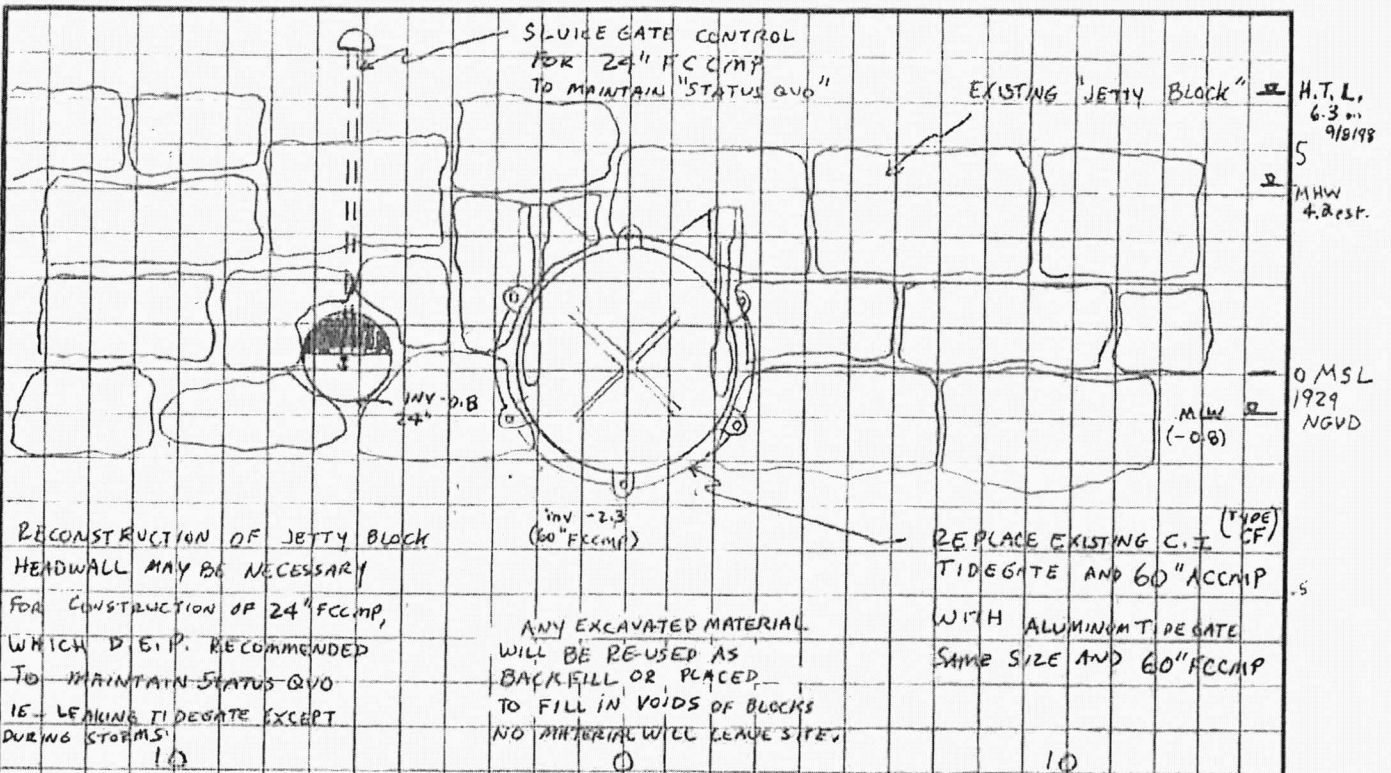 SLUICE GATE CONTROL
FOR 24" FCCMP
TO MAINTAIN "STATUS QUO"
EXISTING "JETTY BLOCK"
H.T.L.
6.3 on
9/8/98
5
MHW
4.2 est.
0 MSL
1929
NGVD
MLW
(-0.8)
INV -0.8
24"
inv -2.3
(60" FCCMP)
RECONSTRUCTION OF JETTY BLOCK
HEADWALL MAY BE NECESSARY
FOR CONSTRUCTION OF 24" FCCMP,
WHICH D.E.P. RECOMMENDED
TO MAINTAIN STATUS QUO
IE - LEAKING TIDEGATE EXCEPT
DURING STORMS
ANY EXCAVATED MATERIAL
WILL BE RE-USED AS
BACKFILL OR PLACED
TO FILL IN VOIDS OF BLOCKS
NO MATERIAL WILL LEAVE SITE.
REPLACE EXISTING C.I. (TYPE CF)
TIDEGATE AND 60" ACCMP
WITH ALUMINUM TIDEGATE
SAME SIZE AND 60" FCCMP
.5
10
0
10